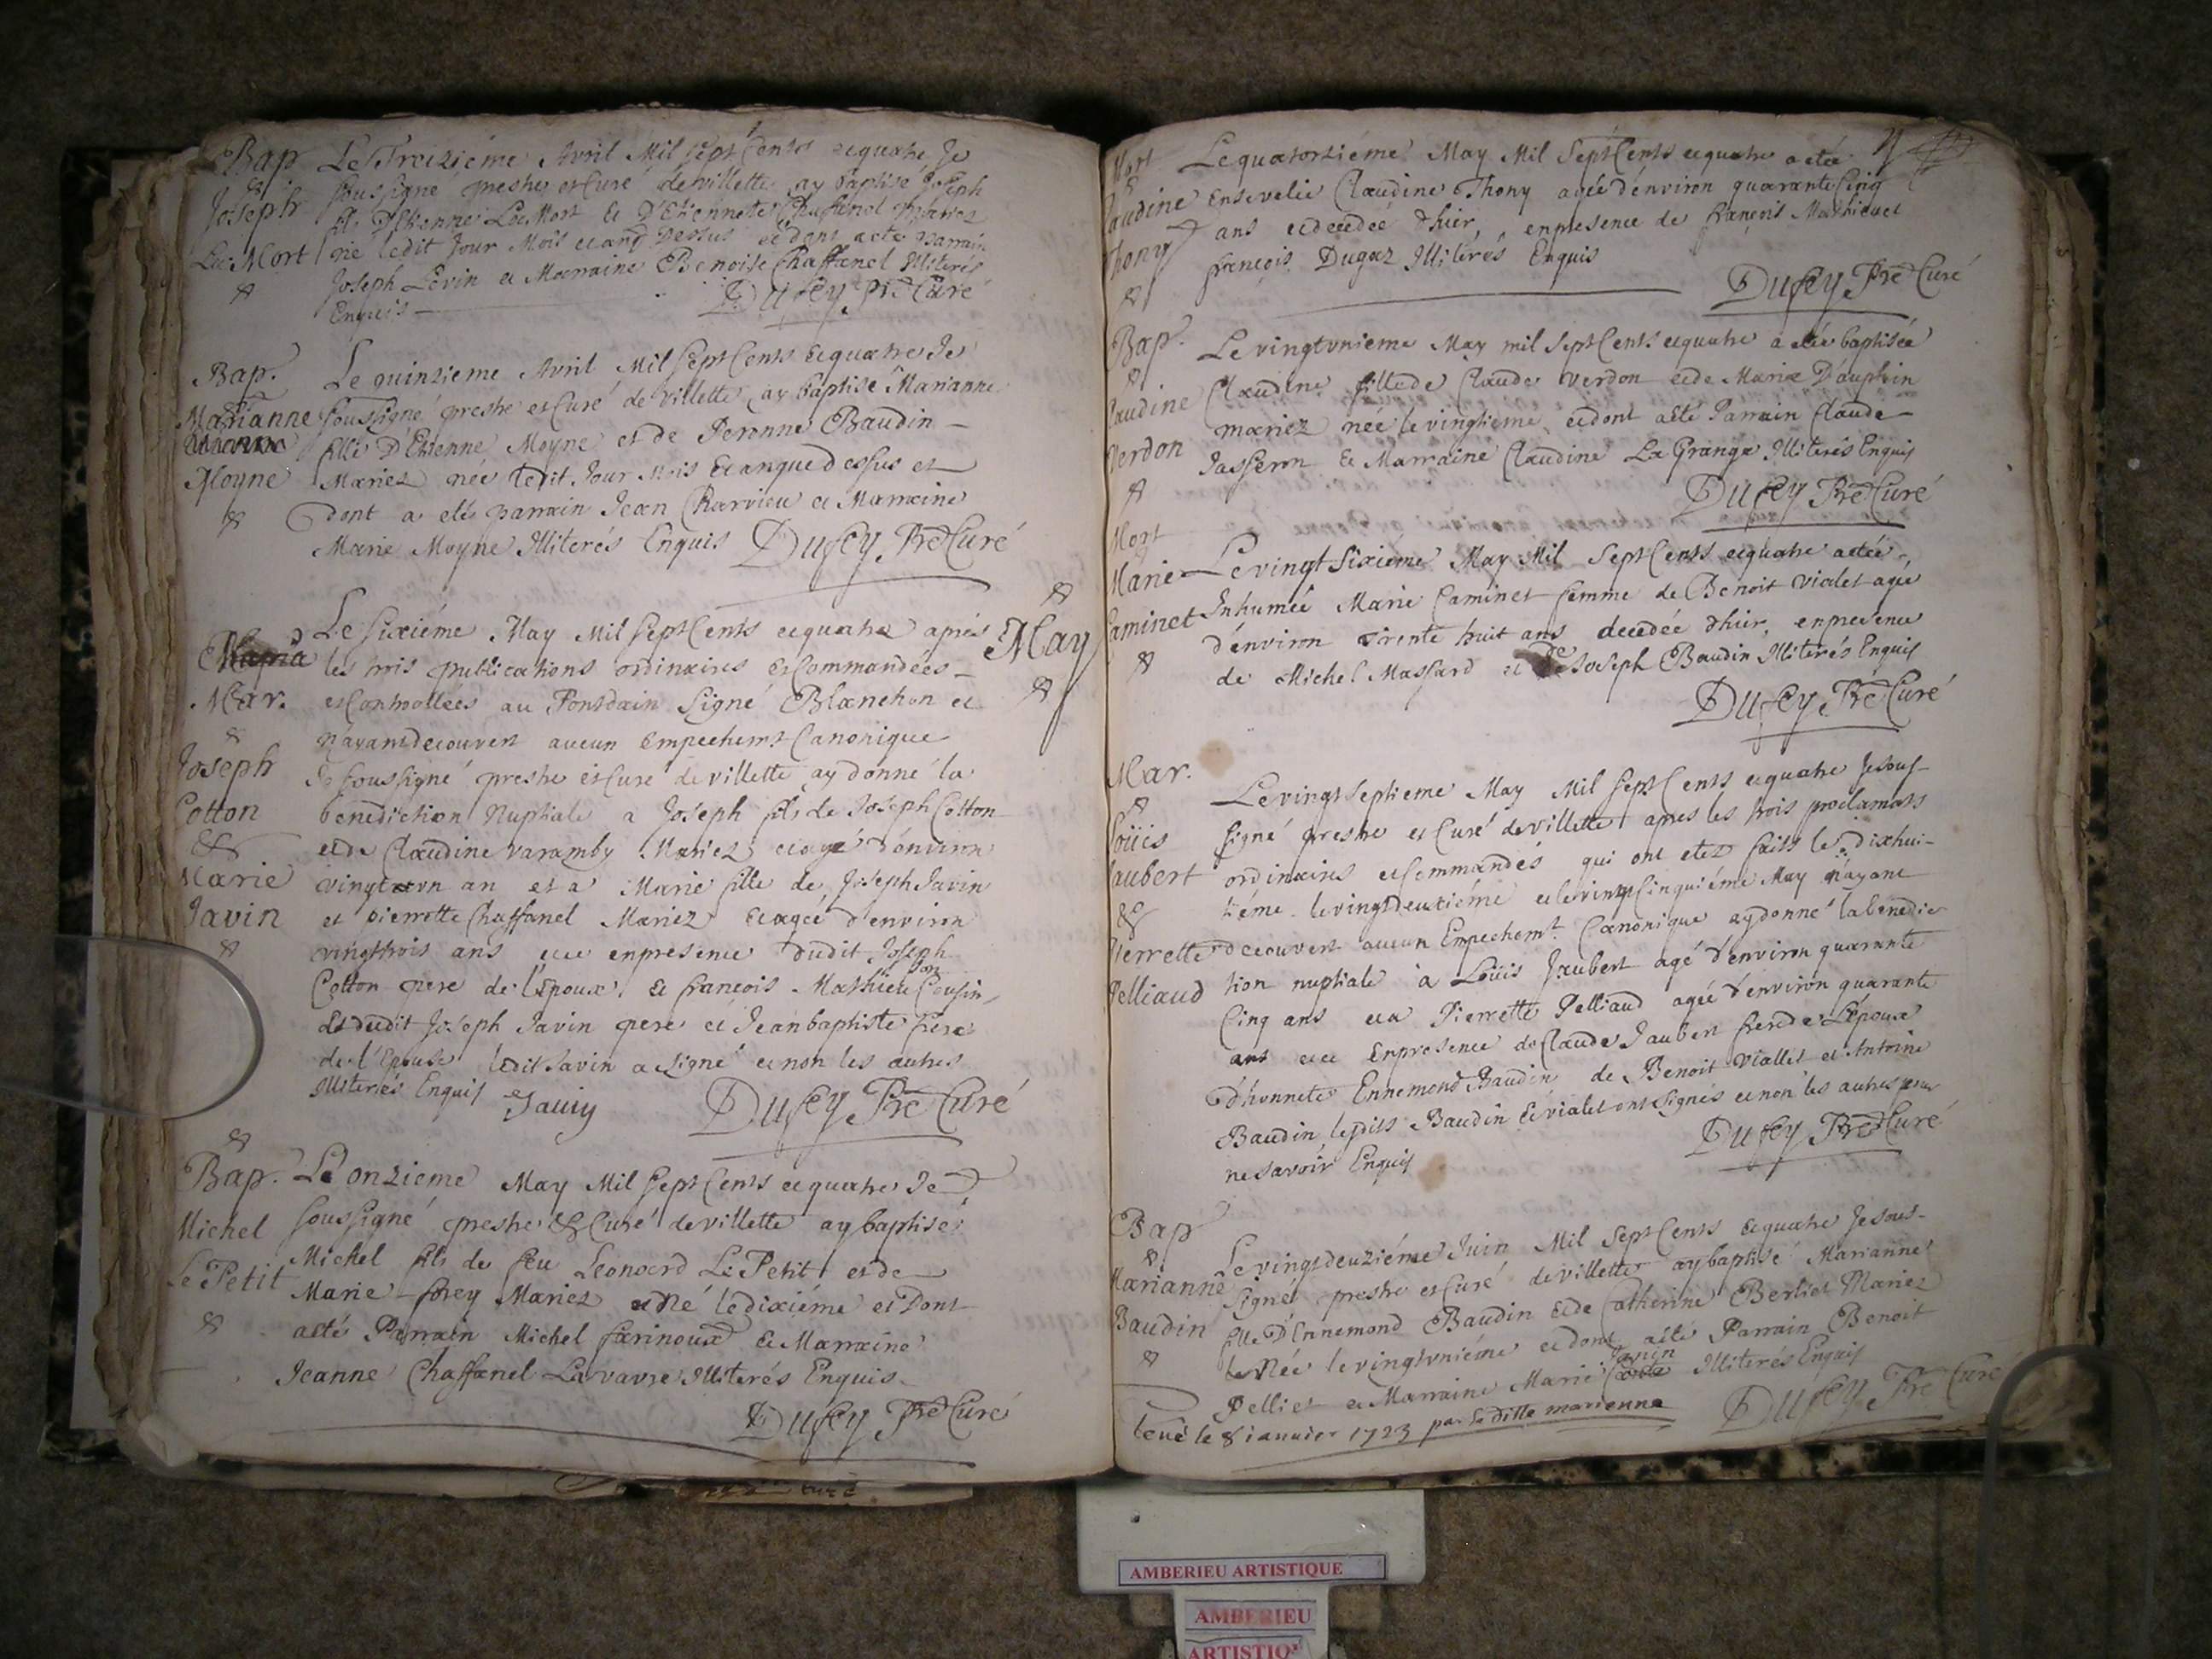 Bap Le Treizieme Avril Mil Sept Cents et quatre Je
Joseph soussigné prestre et Curé de villette ay baptisé Joseph
fils D'Etienne Mort et D'Etiennete Chaffanel Mariez
Mort né ledit Jour Mois et an Dessus et dont a eté parrain
Joseph Levin et Marraine Benoite Chaffanel Illiterés
Enquis Dufey Pre Curé
Bap. Le quinzieme Avril Mil Sept Cents et quatre Je
Marianne soussigné prestre et Curé de villette ay baptisé Marianne
fille D'Etienne Moyne et de Peronne Baudin
Moyne Mariez née ledit Jour Mois et an que dessus et
dont a eté parrain Jean Charvieu et Marraine
Marie Moyne Illiterés Enquis Dufey Pre Curé
May
Le sixiéme May Mil Sept Cents et quatre aprés
les trois publications ordinaires et Commandées
Mar. et Controollées au Pontdain Signé Blanchon et
n'ayant decouvert aucun Empechemt Canonique
Joseph Je soussigné prestre et Curé de villette ay donné la
Cotton benediction Nuptiale a Joseph fils de Joseph Cotton
& et de Claudine varamby Mariez et agé d'environ
Marie vingt vn an et a Marie fille de Joseph Javin
Javin et pierrette Chaffanel Mariez et agée d'environ
vingt trois ans et ce en presence dudit Joseph
Cotton pere de l'Epoux, et francois Mathieu son Cousin
et dudit Joseph Javin pere et Jean baptiste frere
de l'Epouse ledit Javin a signé et non les autres
Illiterés Enquis Javin Dufey Pre Curé
Bap. Le onzieme May Mil Sept Cents et quatre Je
Michel soussigné prestre & Curé de villette ay baptisé
Michel fils de feu Leonard Le Petit et de
Le Petit Marie frey Mariez et Né le dixiéme et Dont
a eté Parrain Michel farinoux et Marraine
Jeanne Chaffanel Lavavre Illiterés Enquis
Dufey Pre Curé
Mort Le quatorziéme May Mil Sept Cents et quatre a etée
Claudine Ensevelie Claudine Thony agée d'environ quarante Cinq
Thony ans et decedée d'hier, en presence de francois Mathieu et
francois Dugaz Illiterés Enquis
Dufey Pre Curé
Bap. Le vingt vniéme May mil Sept Cents et quatre a etée baptisée
Claudine Claudine fille de Claude verdon et de Marie Dauphin
Verdon mariez née le vingtieme et dont a eté Parrain Claude
Jasseron et Marraine Claudine La Grange Illiterés Enquis
Dufey Pre Curé
Mort
Marie Le vingt Sixiéme May Mil Sept Cents et quatre a etée
Caminet Inhumée Marie Caminet femme de Benoit vialet agée
d'environ Trente huit ans decedée d'hier, en presence
de Michel Massard et de Joseph Baudin Illiterés Enquis
Dufey Pre Curé
Mar. Le vingt Septieme May Mil Sept Cents et quatre Je sous-
Loüis signé prestre et Curé de villette apres les trois proclamats
Jaubert ordinaires et Commandés qui ont etez faits les dixhui-
& tiéme, le vingt deuxiéme et le vingt Cinquiéme May n'ayant
Pierrette decouvert aucun Empechemt. Canonique ay donné la benedic
Pelliaud tion nuptiale a Loüis Jaubert agé d'environ quarante
Cinq ans et a Pierrette Pelliaud agée d'environ quarante
ans et ce En presence de Claude Jaubert frere de L'Epoux
d'honnete Ennemond Baudin de Benoit Viallet et Antoine
Baudin lesdits Baudin et vialet ont signés et non les autres pour
ne savoir Enquis Dufey Pre Curé
Bap Le vingt deuziéme Juin Mil Sept Cents et quatre Je sous-
Marianne signé prestre et Curé de villette ay baptisé Marianne
Baudin fille D'Ennemond Baudin et de Catherine Berliet Mariez
Née le vingt vniéme et dont a eté Parrain Benoit
Pelliet et Marraine Marie Javin Illiterés Enquis
levé le 8 ianuier 1723 par la ditte marienne Dufey Pre Curé
AMBERIEU ARTISTIQUE
AMBERIEU
ARTISTIQ